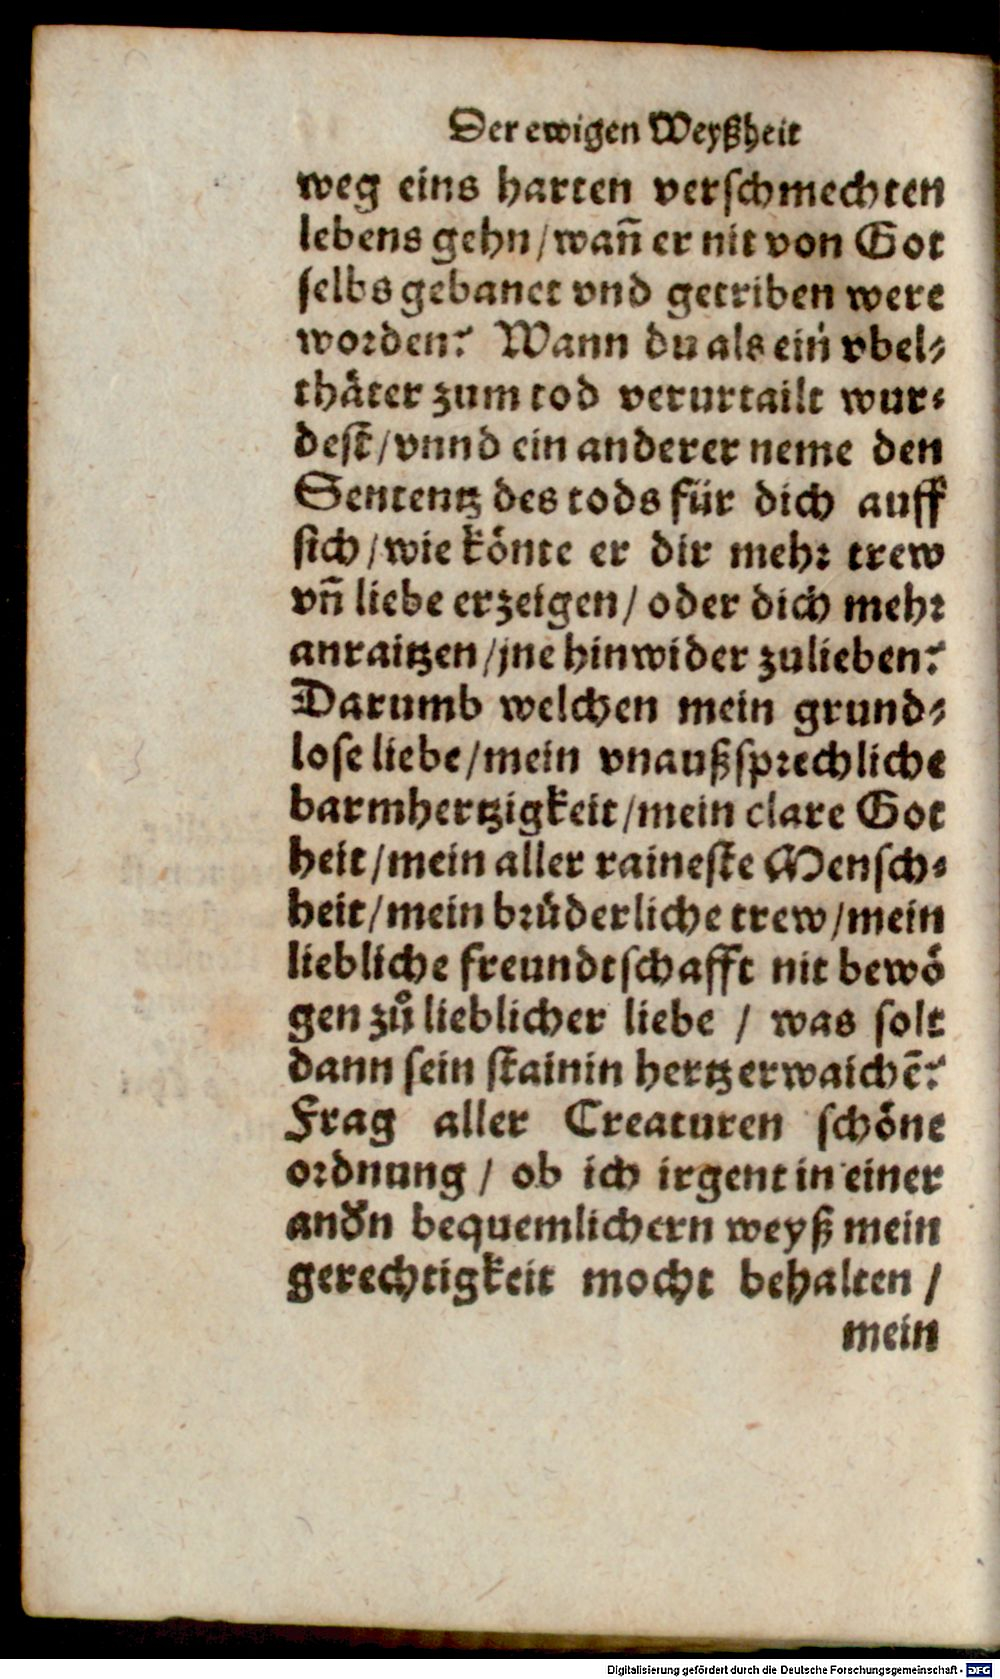 Der ewigen Weyßheit
weg eins harten verschmechten
lebens gehn/wañ er nit von Got
selbs gebanet vnd getriben were
worden? Wann du als ein vbel-
thäter zum tod verurtailt wur-
dest/vnnd ein anderer neme den
Sententz des tods für dich auff
sich/wie könte er dir mehr trew
vñ liebe erzeigen/oder dich mehr
anraitzen/jne hinwider zulieben?
Darumb welchen mein grund-
lose liebe/mein vnaußsprechliche
barmhertzigkeit/mein clare Got
heit/mein aller raineste Mensch-
heit/mein brüderliche trew/mein
liebliche freundtschafft nit bewö
gen zů lieblicher liebe / was solt
dann sein stainin hertz erwaichē?
Frag aller Creaturen schöne
ordnung / ob ich irgent in einer
andn̄ bequemlichern weyß mein
gerechtigkeit mocht behalten /
mein
Digitalisierung gefördert durch die Deutsche Forschungsgemeinschaft - DFG